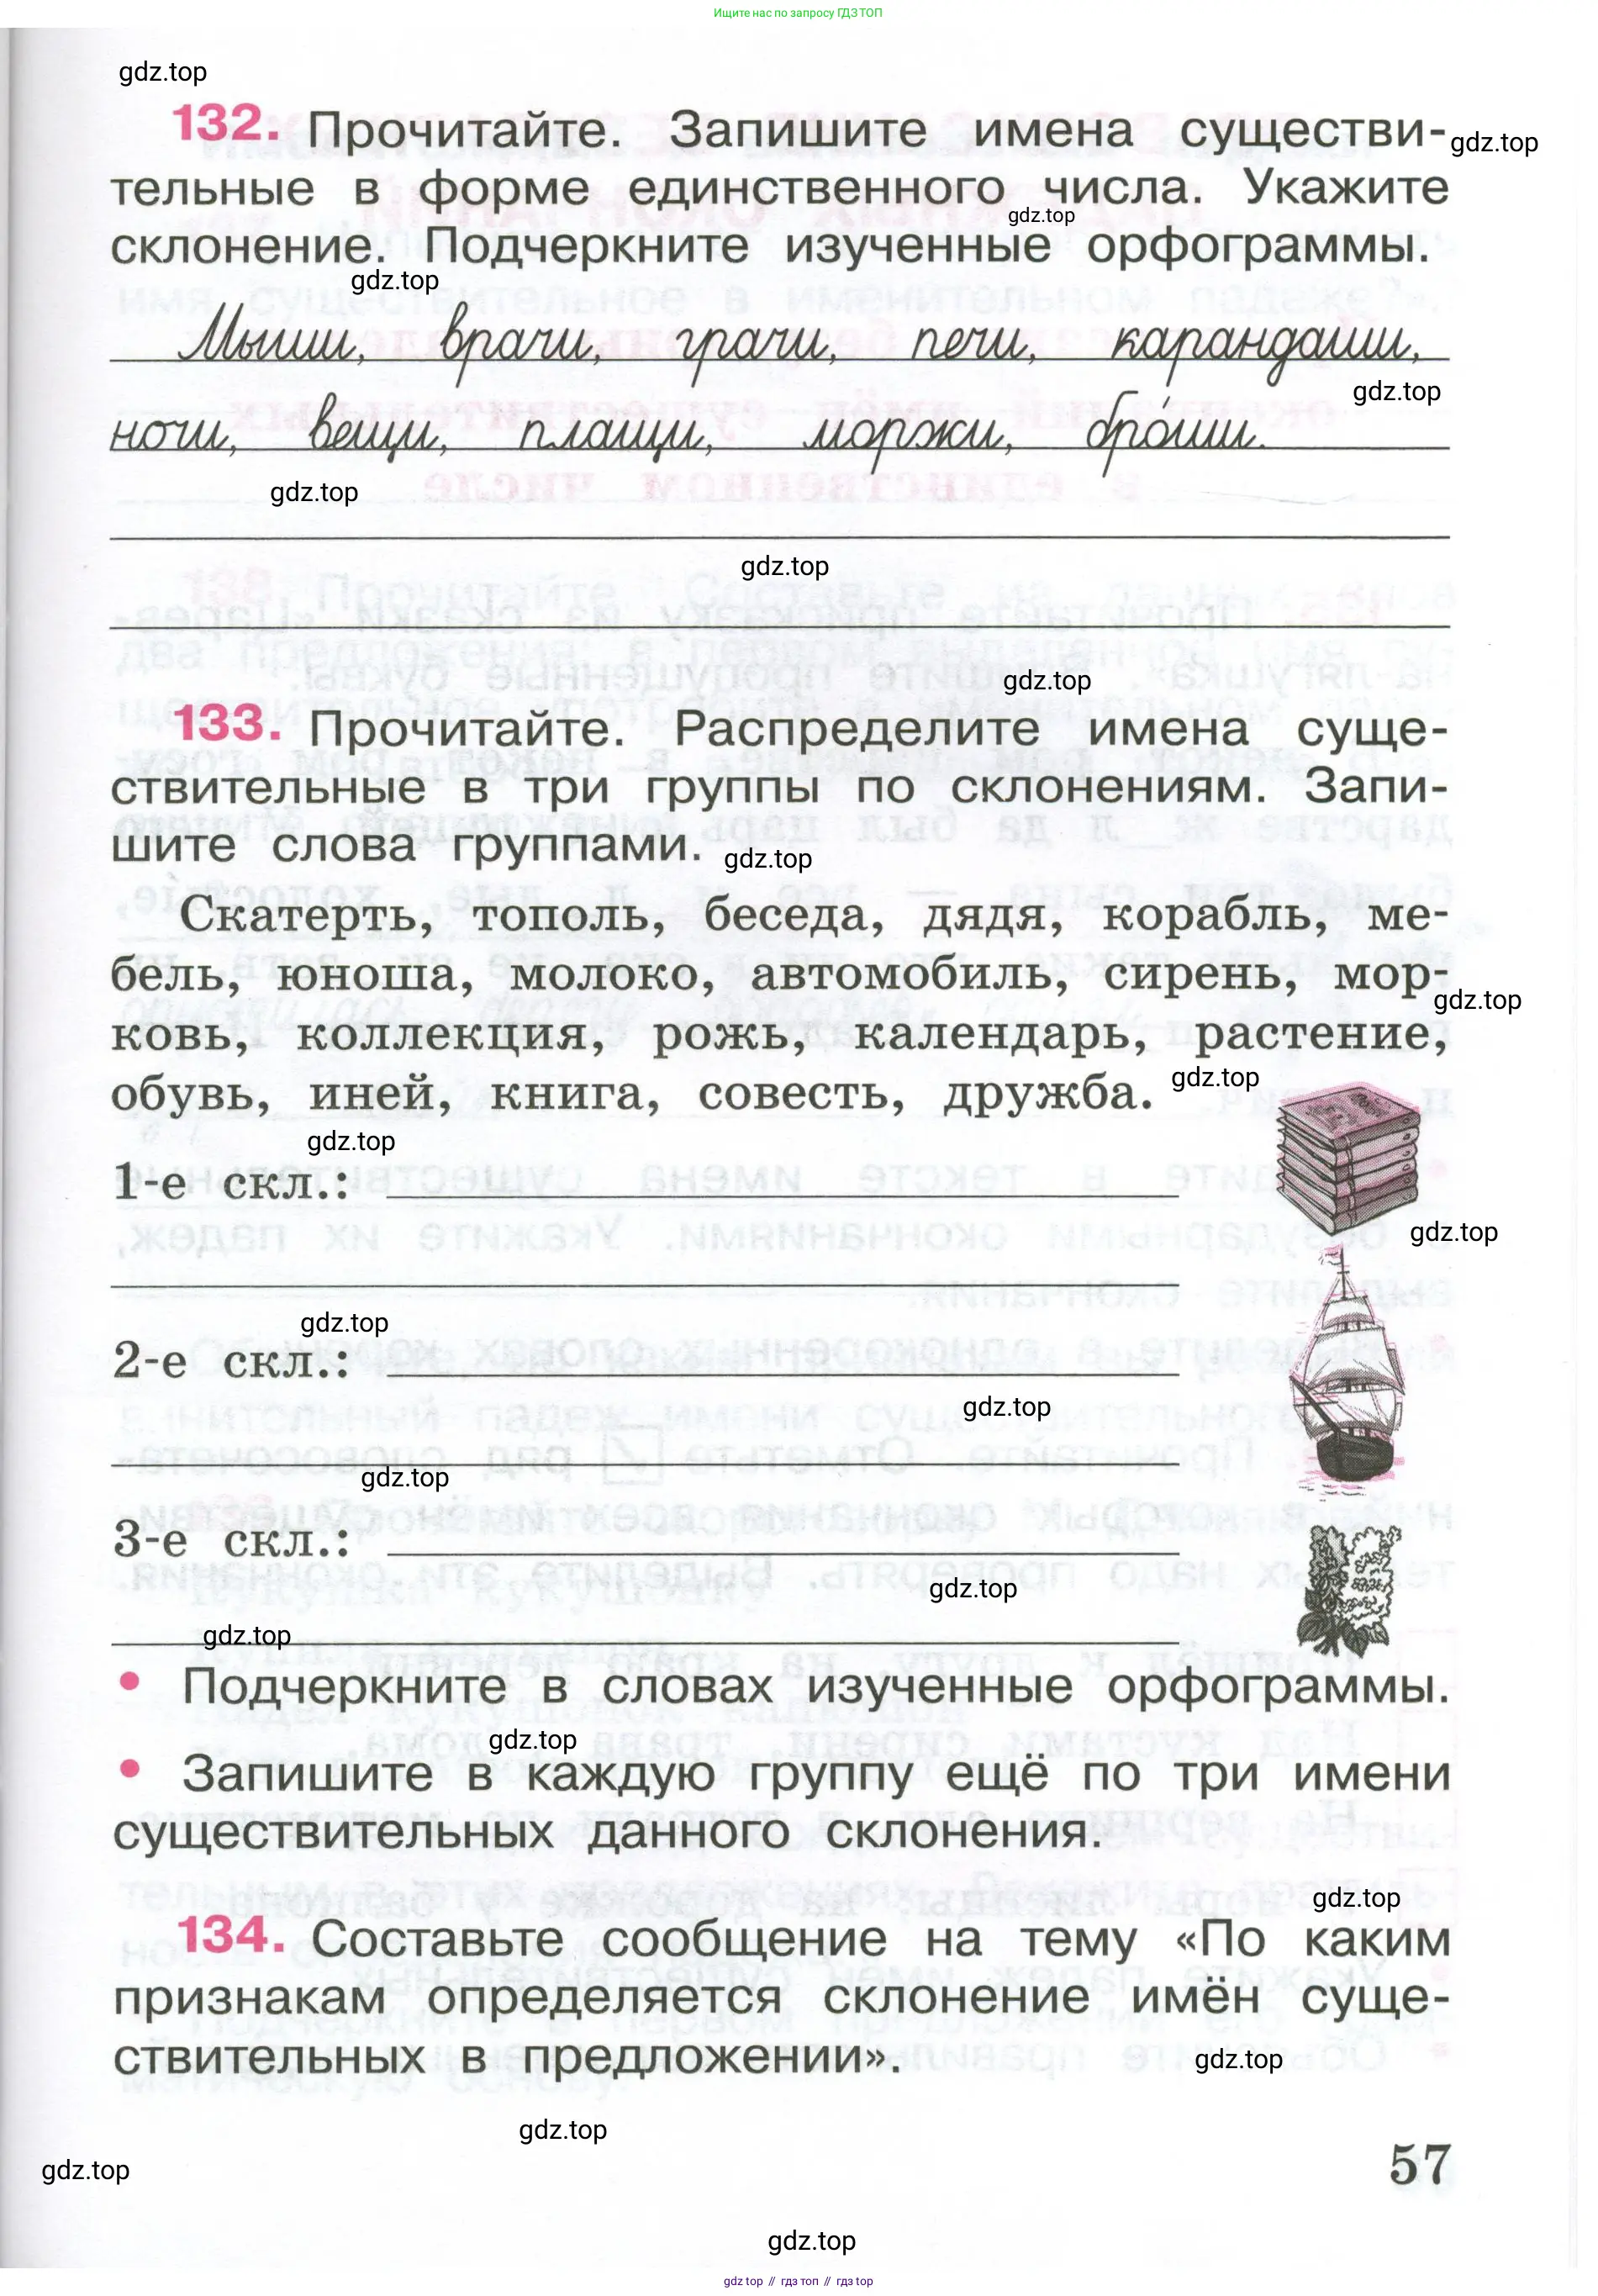 Ищите нас по запросу ГДЗ ТОП
gdz.top
132. Прочитайте. Запишите имена существи-
gdz.top
тельные в форме единственного числа. Укажите
gdz.top
склонение. Подчеркните изученные орфограммы.
gdz.top
Мыши, врачи, грачи, печи, карандаши,
gdz.top
ночи, вещи, плащи, моржи, бро́ши.
gdz.top
gdz.top
gdz.top
133. Прочитайте. Распределите имена суще-
ствительные в три группы по склонениям. Запи-
шите слова группами.
gdz.top
Скатерть, тополь, беседа, дядя, корабль, ме-
бель, юноша, молоко, автомобиль, сирень, мор-
gdz.top
ковь, коллекция, рожь, календарь, растение,
обувь, иней, книга, совесть, дружба.
gdz.top
gdz.top
1-е скл.:
gdz.top
gdz.top
2-е скл.:
gdz.top
gdz.top
3-е скл.:
gdz.top
gdz.top
• Подчеркните в словах изученные орфограммы.
gdz.top
• Запишите в каждую группу ещё по три имени
существительных данного склонения.
gdz.top
134. Составьте сообщение на тему «По каким
признакам определяется склонение имён суще-
ствительных в предложении».
gdz.top
gdz.top
57
gdz.top
gdz.top
gdz top // гдз топ // гдз top